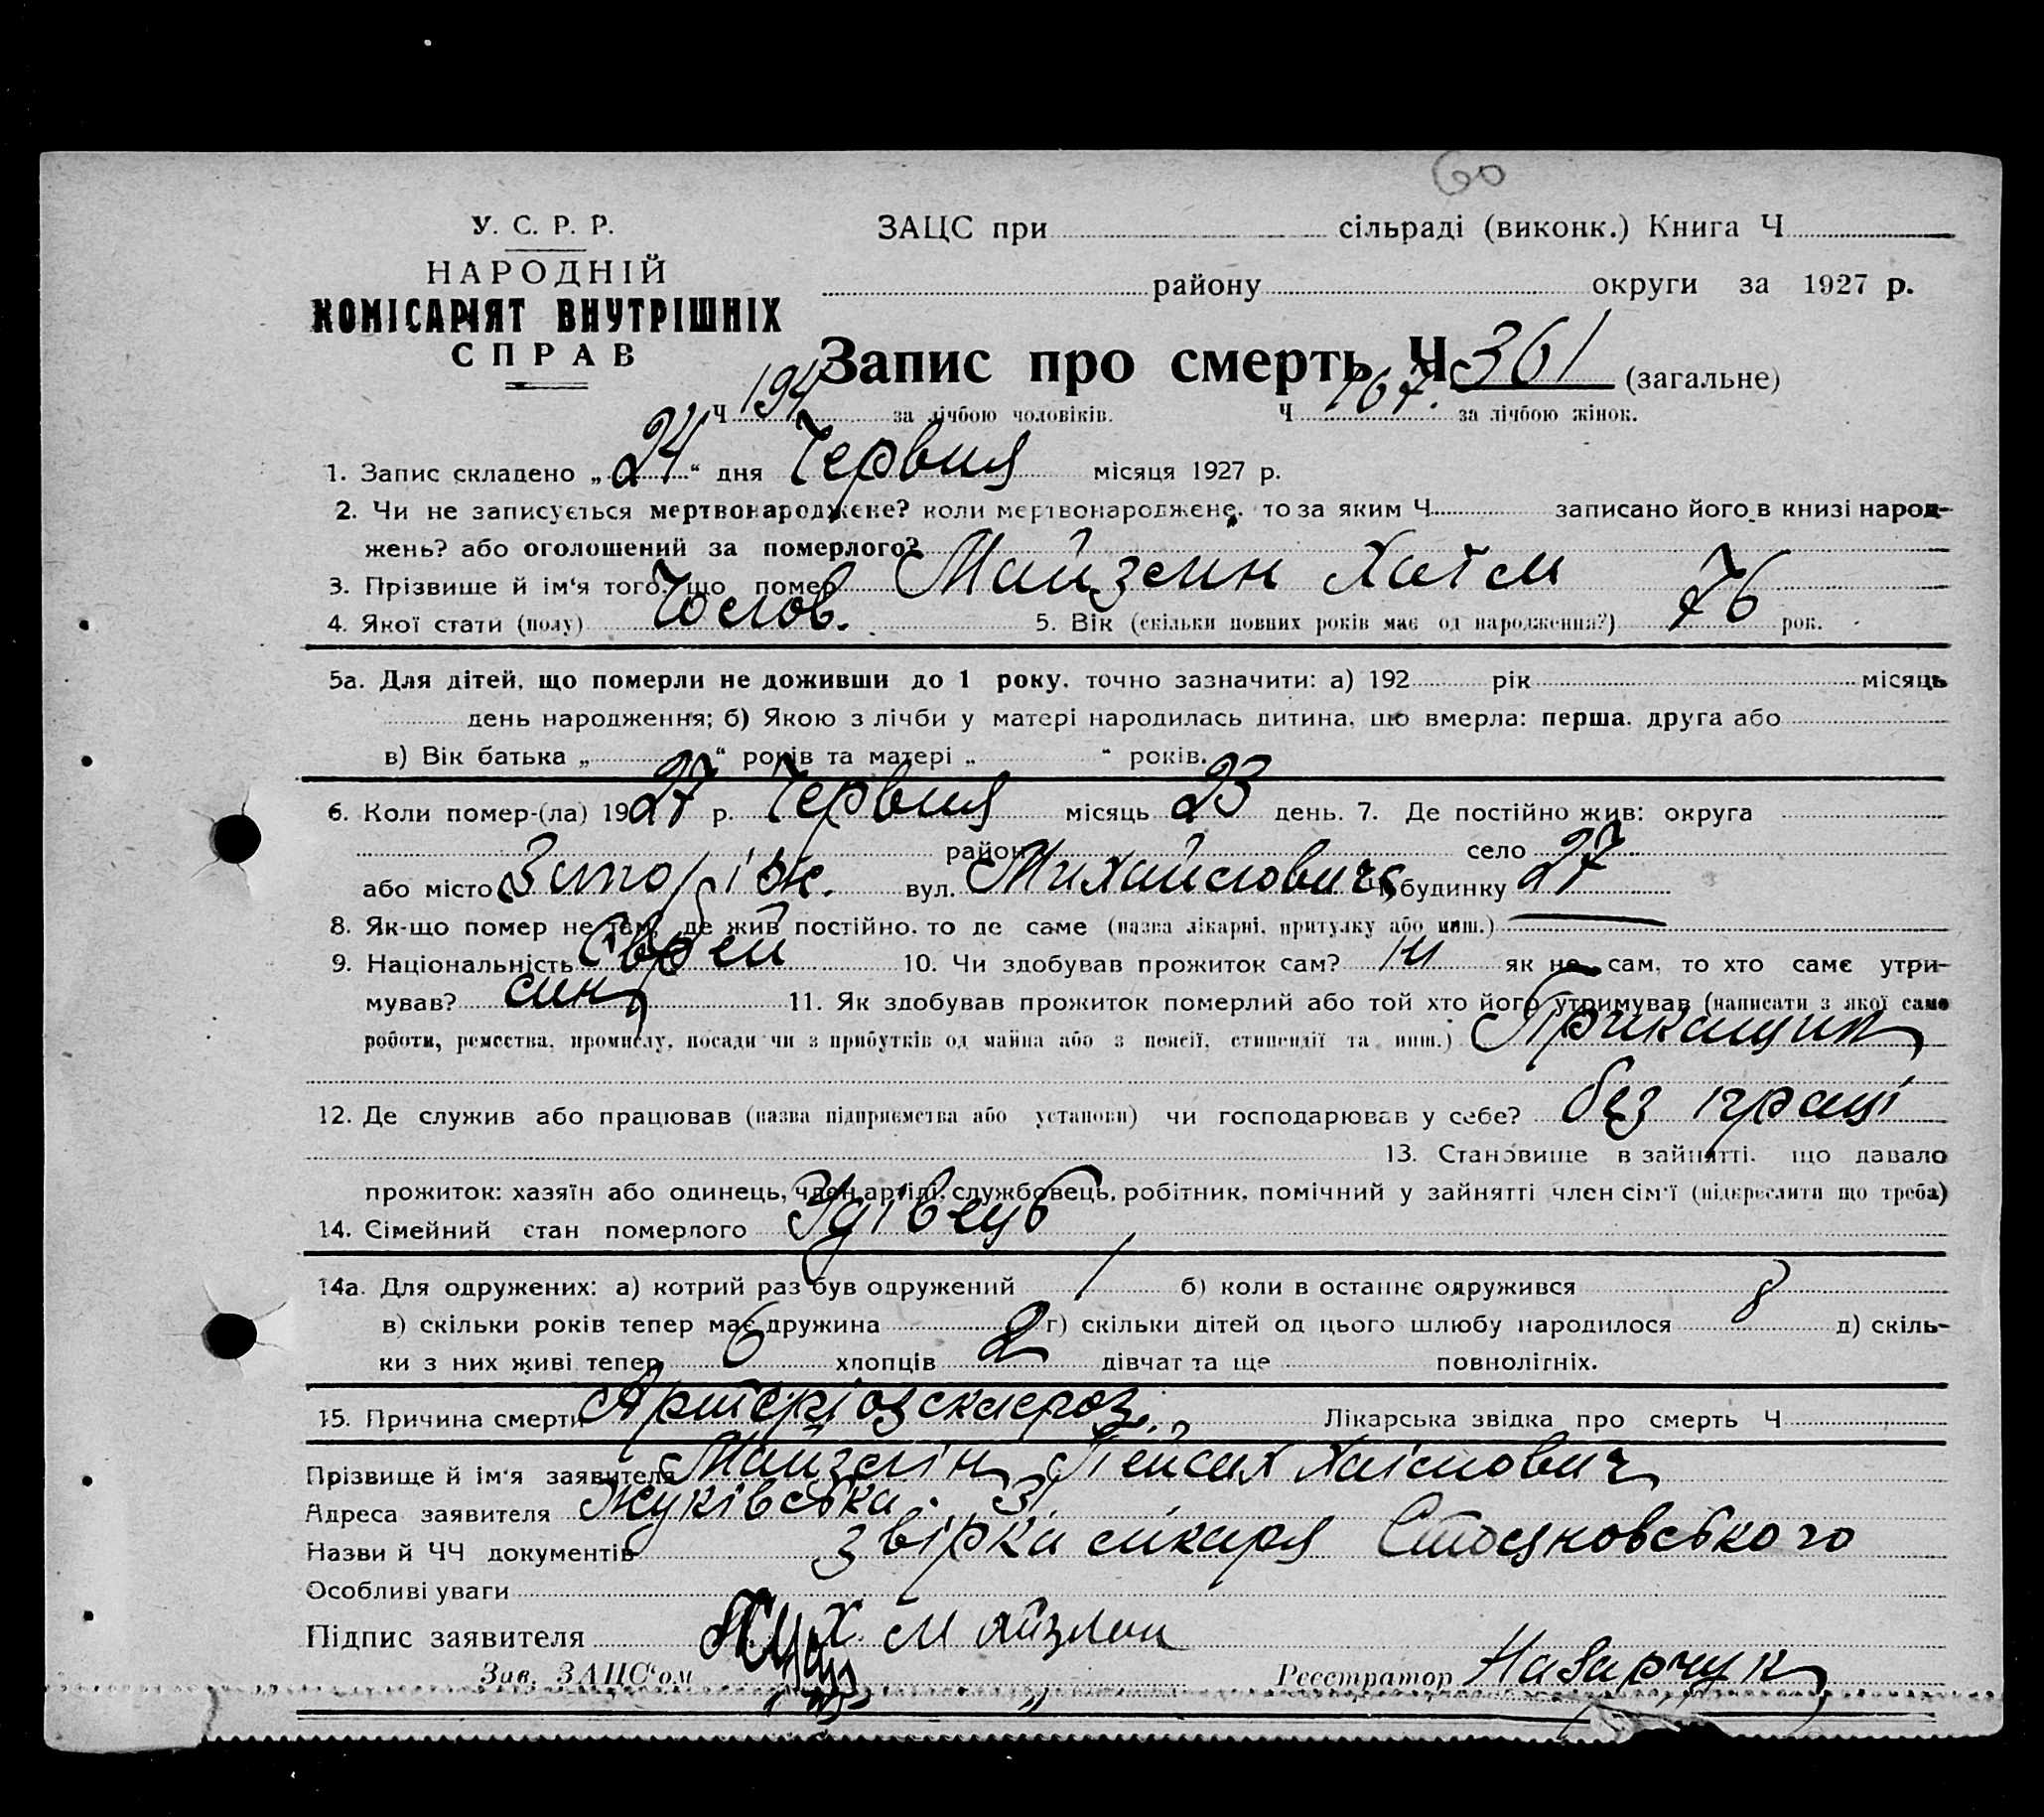 60
У. С. Р. Р.
НАРОДНІЙ
КОМІСАРІЯТ ВНУТРІШНІХ
СПРАВ
ЗАЦС при сільраді (виконк.) Книга Ч
району округи за 1927 р.
Запис про смерть Ч 361 (загальне)
Ч 194 за лічбою чоловіків. Ч 167. за лічбою жінок.
1. Запис складено „24“ дня Червня місяця 1927 р.
2. Чи не записується мертвонароджене? коли мертвонароджене, то за яким Ч записано його в книзі народ-
жень? або оголошений за померлого?
3. Прізвище й ім‘я того, що помер Майзелин Хаїм
4. Якої стати (полу) Чолов. 5. Вік (скільки повних років має од народження?) 76 рок.
5а. Для дітей, що померли не доживши до 1 року, точно зазначити: а) 192 рік місяць
день народження; б) Якою з лічби у матері народилась дитина, що вмерла: перша, друга або
в) Вік батька „ “ років та матері „ “ років.
6. Коли помер-(ла) 1927 р. Червня місяць 23 день. 7. Де постійно жив: округа
район село
або місто вул. Михайловича, будинку 27
8. Як-що помер не там, де жив постійно, то де саме (назва лікарні, притулку або инш.)
9. Національність Єврей 10. Чи здобував прожиток сам? ні як не сам, то хто саме утри-
мував? син 11. Як здобував прожиток померлий або той хто його утримував (написати з якої саме
роботи, ремества, промислу, посади чи з прибутків од майна або з пенсії, стипендії та инш.) Прикащик
12. Де служив або працював (назва підприємства або установи) чи господарював у себе? без праці
13. Становище в зайнятті, що давало
прожиток: хазяїн або одинець, член артілі, службовець, робітник, помічний у зайнятті член сім‘ї (підкреслити що треба)
14. Сімейний стан померлого Удівець
14а. Для одружених: а) котрий раз був одружений 1 б) коли в останнє одружився
в) скільки років тепер має дружина г) скільки дітей од цього шлюбу народилося 8 д) скіль-
ки з них живі тепер 6 хлопців 2 дівчат та ще повнолітніх.
15. Причина смерти Артеріозсклероз Лікарська звідка про смерть Ч
Прізвище й ім‘я заявителя Майзелін Пейсах Хаімович
Адреса заявителя Жуківська 31
Назви й ЧЧ документів звірка лікаря Стояновського
Особливі уваги
Підпис заявителя Х. Майзлин
Зав. ЗАЦС‘ом Реєстратор Назарчук